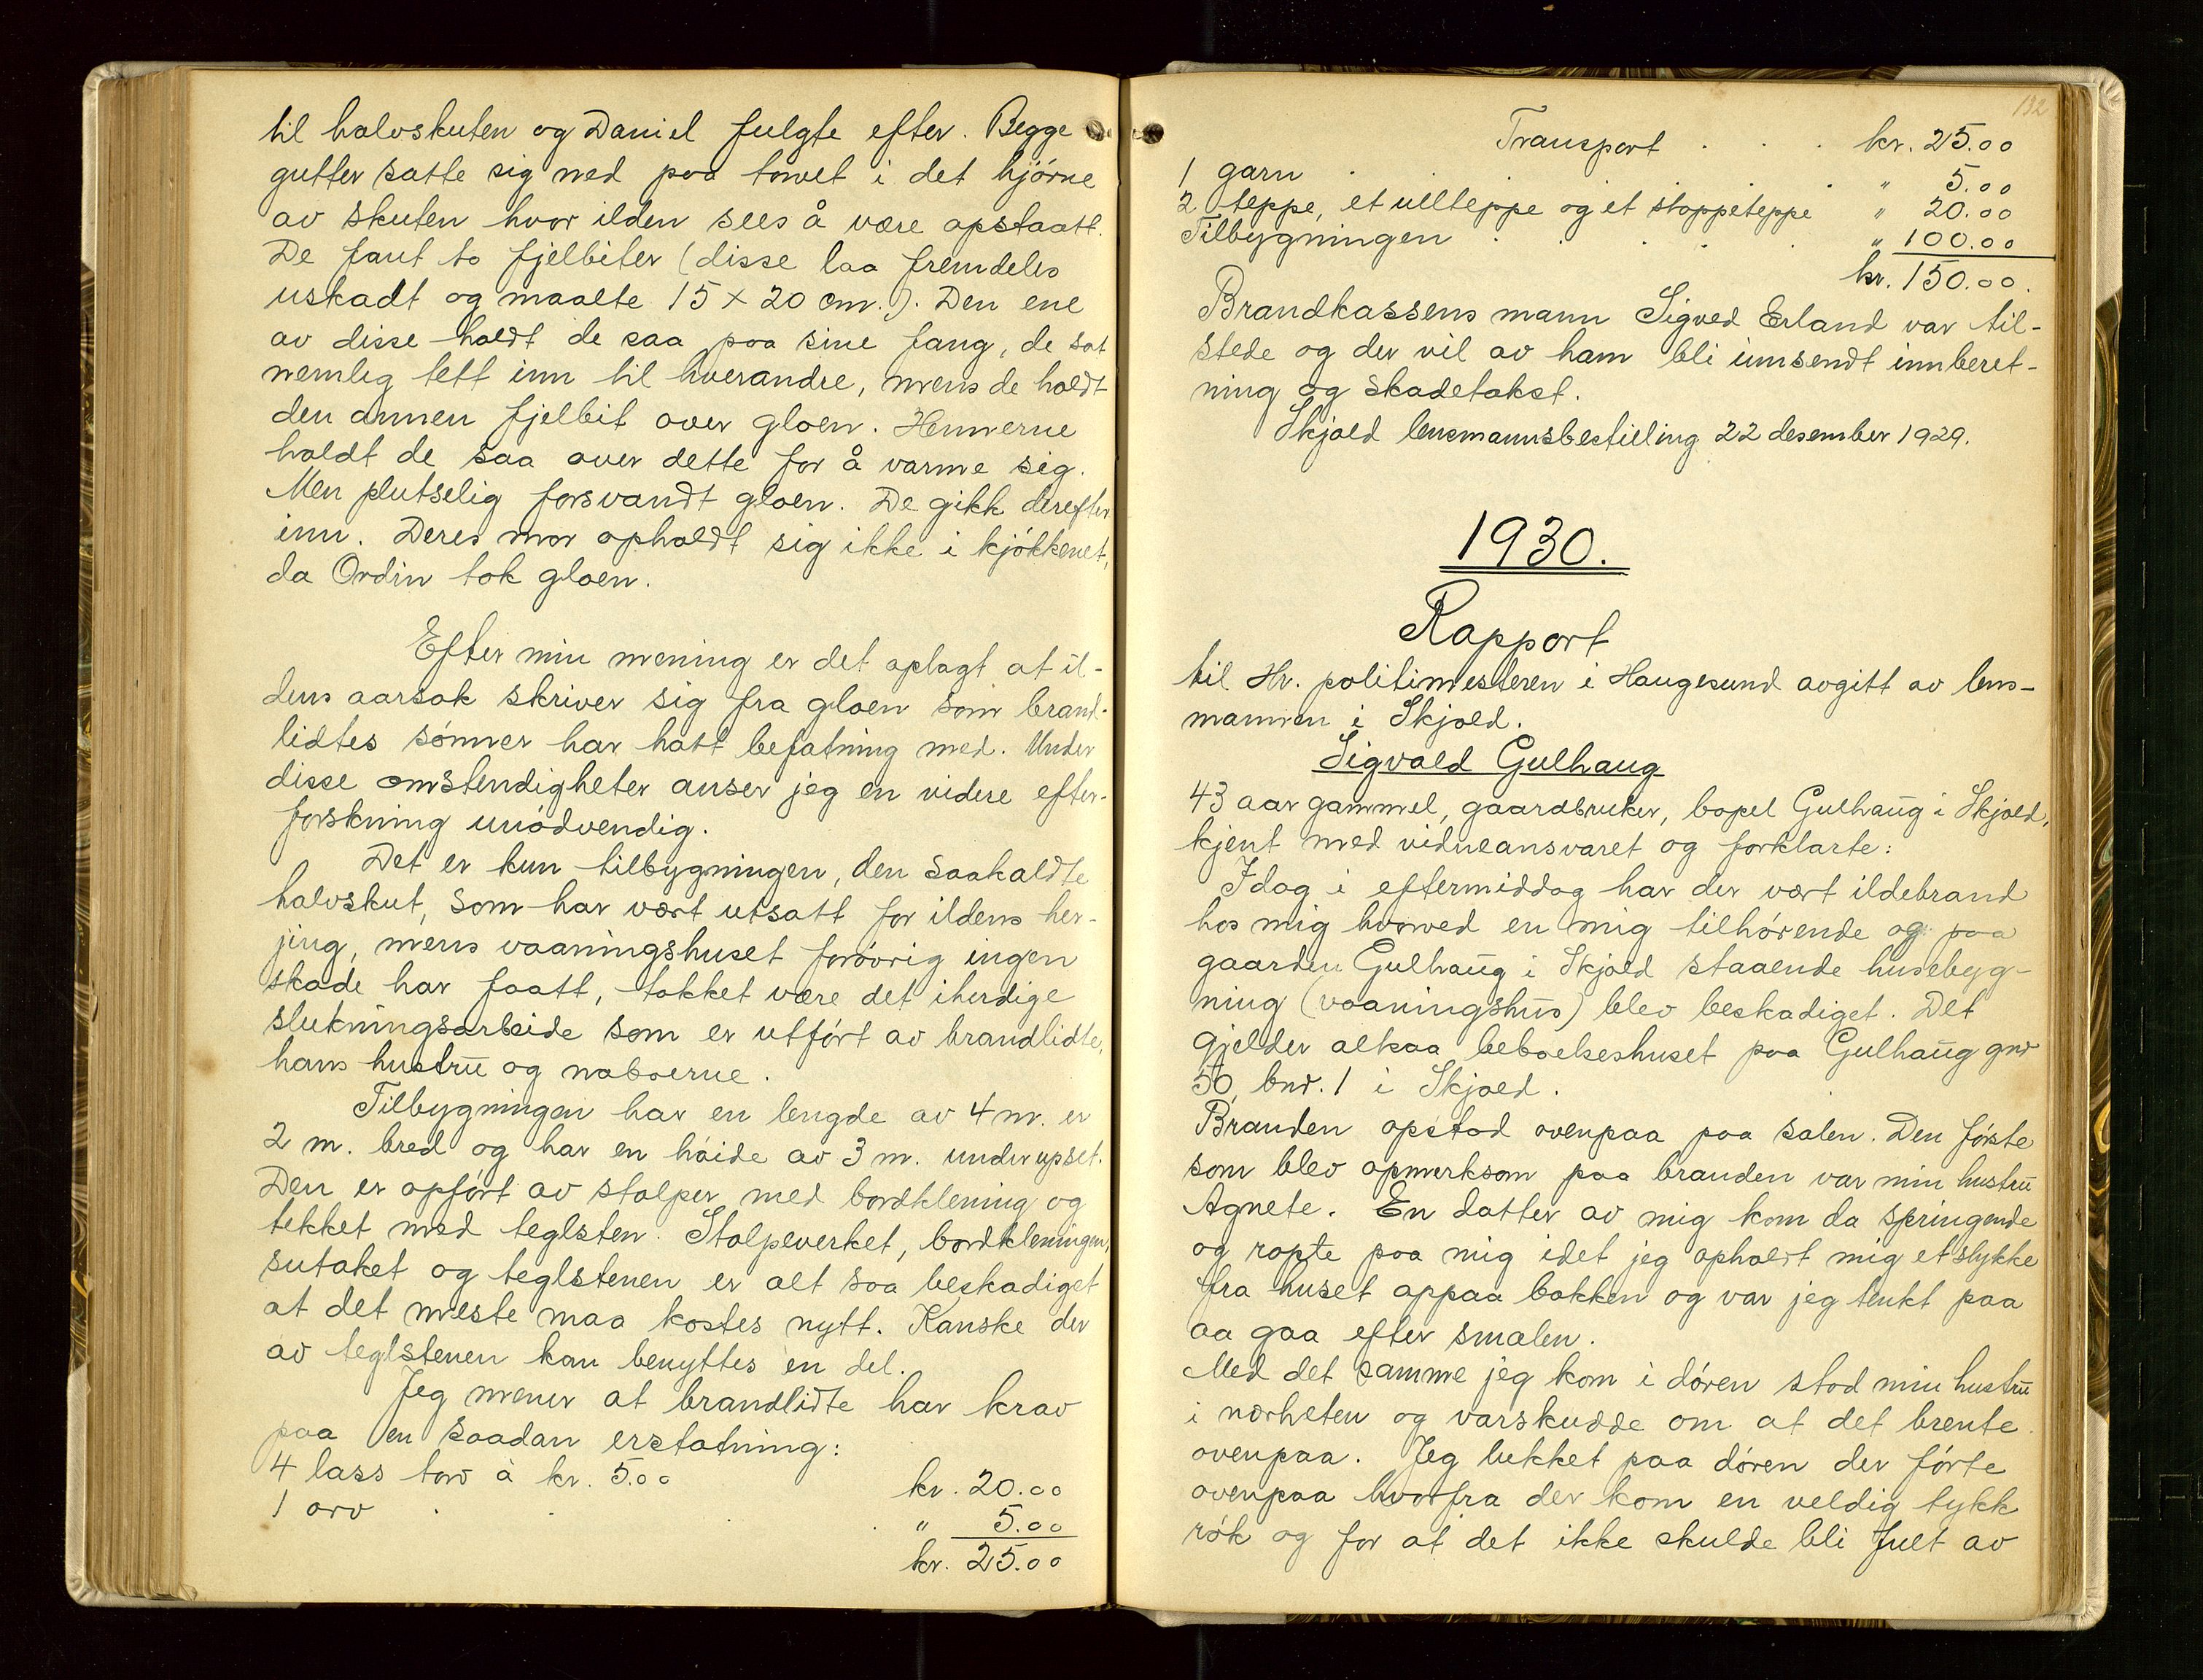 til halvskuten og Daniel fulgte efter. Begge
gutter satte sig ned paa torvet i det hjörne
av skuten hvor ilden sees å være opstaatt.
De fant to fjelbiter (disse laa fremdeles
uskadt og maalte 15 x 20 cm.). Den ene
av disse holdt de saa paa sine fang, de sat
nemlig tett inn til hverandre, mens de holdt
den annen fjelbit over gloen. Hennerne
holdt de saa over dette for å varme sig.
Men plutselig forsvandt gloen. De gikk derefter
inn. Deres mor opholdt sig ikke i kjökkenet,
da Ordin tok gloen.
Efter min mening er det oplagt at il-
dens aarsak skriver sig fra gloen som brand-
lidtes sönner har hatt befatning med. Under
disse omstendigheter anser jeg en videre efter-
forskning unödvendig.
Det er kun tilbygningen, den saakaldte
halvskut, som har vært utsatt for ildens her-
jing, mens vaaningshuset forövrig ingen
skade har faatt, takket være det iherdige
slukningsarbeide som er utfört av brandlidte,
hans hustru og naboerne.
Tilbygningen har en lengde av 4 m. er
2 m. bred og har en höide av 3 m. under upset.
Den er opfört av stolper med bordklening og
tekket med teglsten. Stolpeverket, bordkleningen,
sutaket og teglstenen er alt saa beskadiget
at det meste maa kostes nytt. Kanske der
av teglstenen kan benyttes en del.
Jeg mener at brandlidte har krav
paa en saadan erstatning:
4 lass torv à kr. 5.00 kr. 20.00
1 orv . . . " 5.00
kr. 25.00
132
Transport . . . kr. 25.00
1 garn . . . " 5.00
2 teppe, et ullteppe og et stoppeteppe " 20.00
Tilbygningen . . . . " 100.00
kr. 150.00.
Brandkassens mann Sigved Erland var til-
stede og der vil av ham bli innsendt innberet-
ning og skadetakst.
Skjold lensmannsbestilling 22 desember 1929.
1930.
Rapport
til Hr. politimesteren i Haugesund avgitt av lens-
mannen i Skjold.
Sigvald Gulhaug
43 aar gammel, gaardbruker, bopel Gulhaug i Skjold,
kjent med vidneansvaret og forklarte:
Idag i eftermiddag har der vært ildebrand
hos mig hvorved en mig tilhörende og paa
gaarden Gulhaug i Skjold staaende husebyg-
ning (vaaningshus) blev beskadiget. Det
gjelder altsaa beboelseshuset paa Gulhaug gnr
50, bnr. 1 i Skjold.
Branden opstod ovenpaa paa salen. Den förste
som blev opmerksom paa branden var min hustru
Agnete. En datter av mig kom da springende
og ropte paa mig idet jeg opholdt mig et stykke
fra huset oppaa bakken og var jeg tenkt paa
aa gaa efter smalen.
Med det samme jeg kom i dören stod min hustru
i nærheten og varskudde om at det brente
ovenpaa. Jeg lukket paa dören der förte
ovenpaa hvorfra der kom en veldig tykk
rök og for at det ikke skulde bli fult av